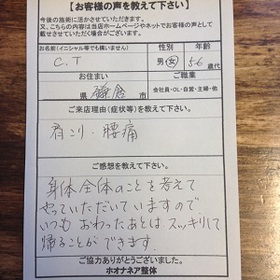 【お客様の声を教えて下さい】
今後の施術に活かさせていただきます。
又、こちらの内容は当店ホームページやネットでお客様の声として
載せさせていただく場合がございます。
お名前(イニシャル等でも構いません) 性別 年齢
C.T 男・女 56歳代
お住まい ご職業
県 鎌倉市 会社員・OL・自営・主婦・他
ご来店理由(症状等)を教えて下さい。
肩こり・腰痛
ご感想を教えて下さい。
身体全体のことを考えて
やっていただいていますので
いつも おわったあとは スッキリして
帰ることができます。
ご協力ありがとうございました。
ホオナネア整体